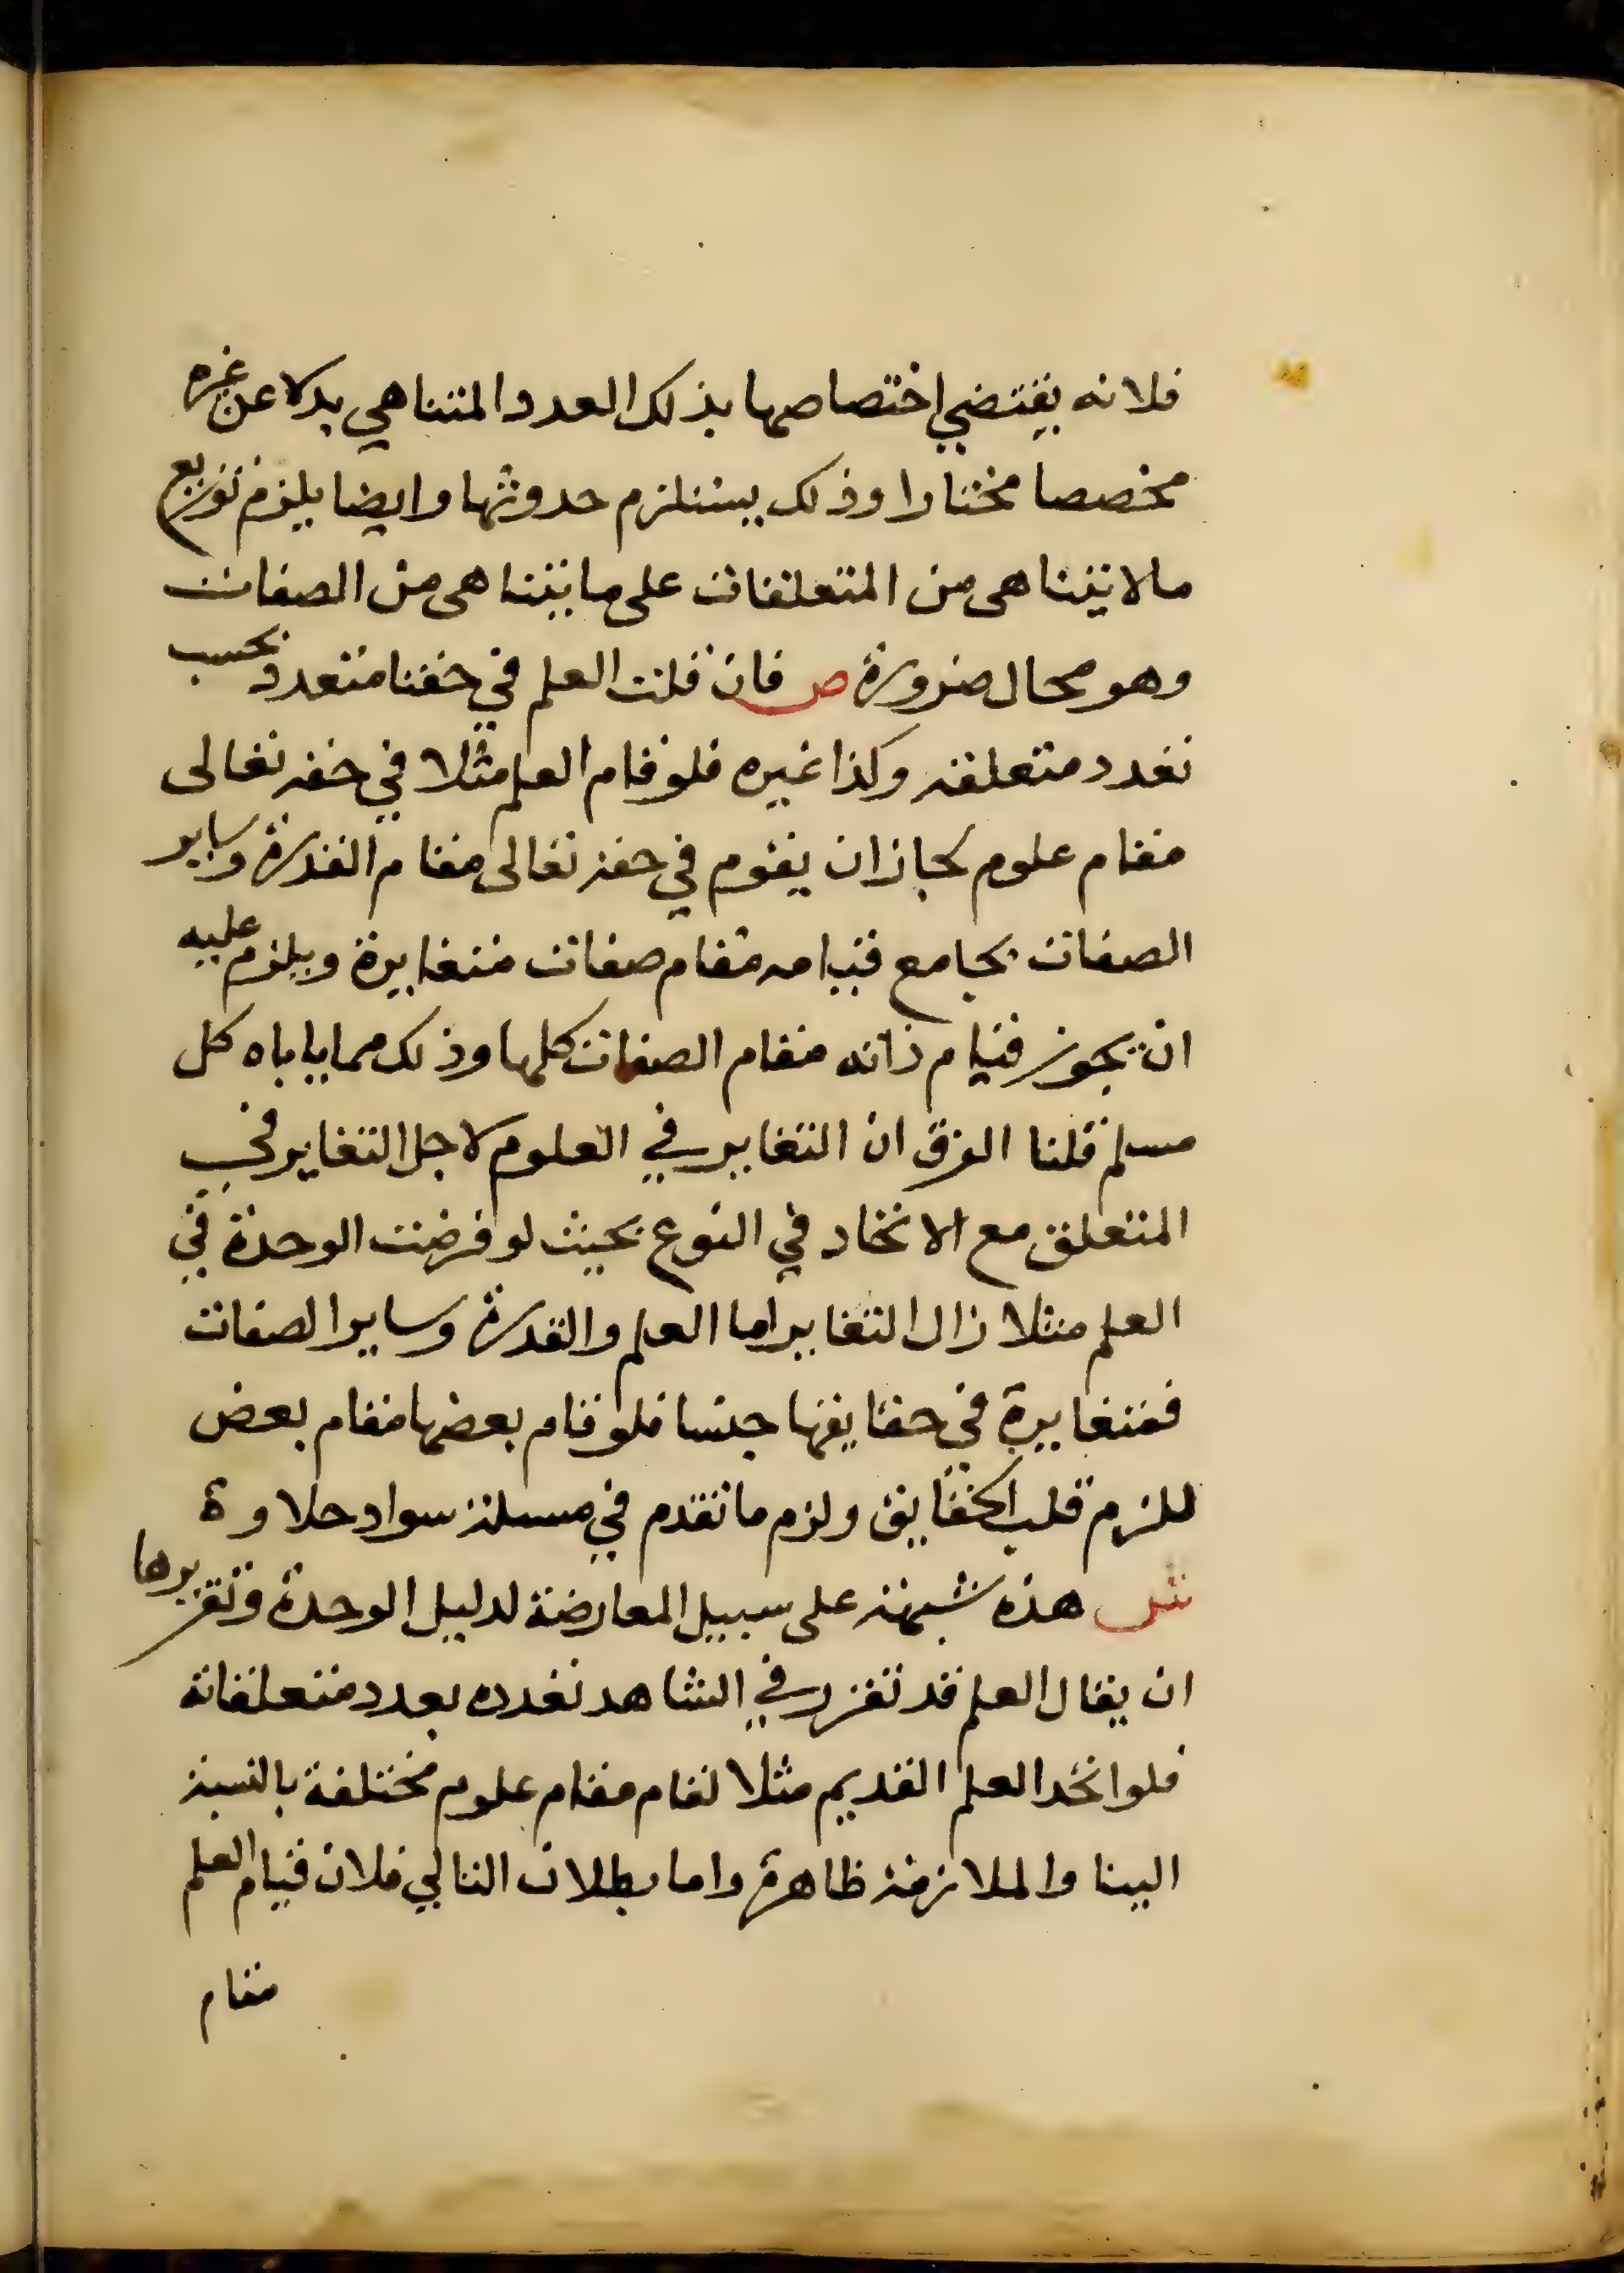 فلانه يقتضي اختصاصها بذلك العدد المتناهي بدلا عن غيره
مخصصا مختارا وذلك يستلزم حدوثها وايضا يلزم توزيع
مالا يتناهى من المتعلقات على ما يتناهى من الصفات
وهو محال ضرورة ص فان قلت العلم في حقنا متعدد بحسب
تعدد متعلقه وكذا غيره فلو قام العلم مثلا في حقه تعالى
مقام علوم لجاز ان يقوم في حقه تعالى مقام القدرة وساير
الصفات بجامع قيامه مقام صفات متغايرة ويلزم عليه
ان يجوز قيام ذاته مقام الصفات كلها وذلك مما ياباه كل
مسلم قلنا الفرق ان التغاير في العلوم لاجل التغاير في
المتعلق مع الاتحاد في النوع بحيث لو فرضت الوحدة في
العلم مثلا زال التغاير اما العلم والقدرة وساير الصفات
فمتغايرة في حقايقها جنسا فلو قام بعضها مقام بعض
للزم قلب الحقايق ولزم ما تقدم في مسلة سواد حلاوة
ش هذه شبهة على سبيل المعارضة لدليل الوحدة وتقريرها
ان يقال العلم قد تقرر في الشاهد تعدده بعدد متعلقاته
فلو اتحد العلم القديم مثلا لقام مقام علوم مختلفة بالنسبة
الينا والملازمة ظاهرة واما بطلان التالي فلان قيام العلم
مقام